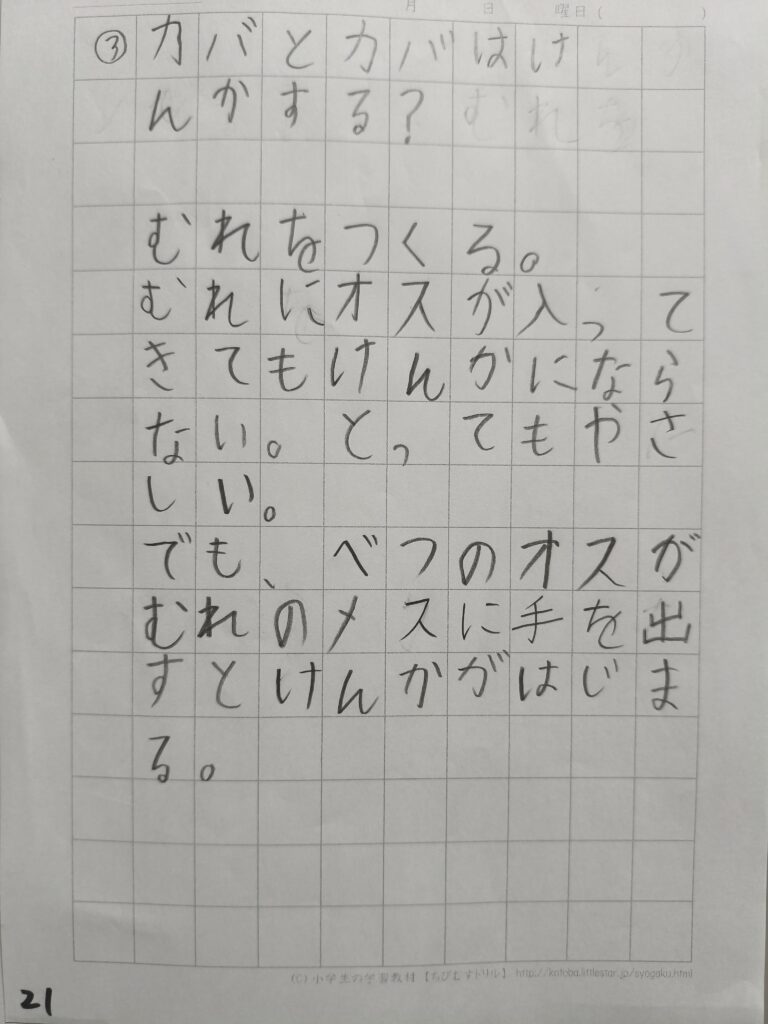 月 日 曜日 ( )
③カバとカバはけ
んかする?
むれをつくる。
むれにオスが入って
きてもけんかになら
ない。とってもやさ
しい。
でも、べつのオスが
むれのメスに手を出
すとけんかがはじま
る。
(C) 小学生の学習教材 【ちびむすドリル】 http://kotoba.littlestar.jp/syogaku.html
21